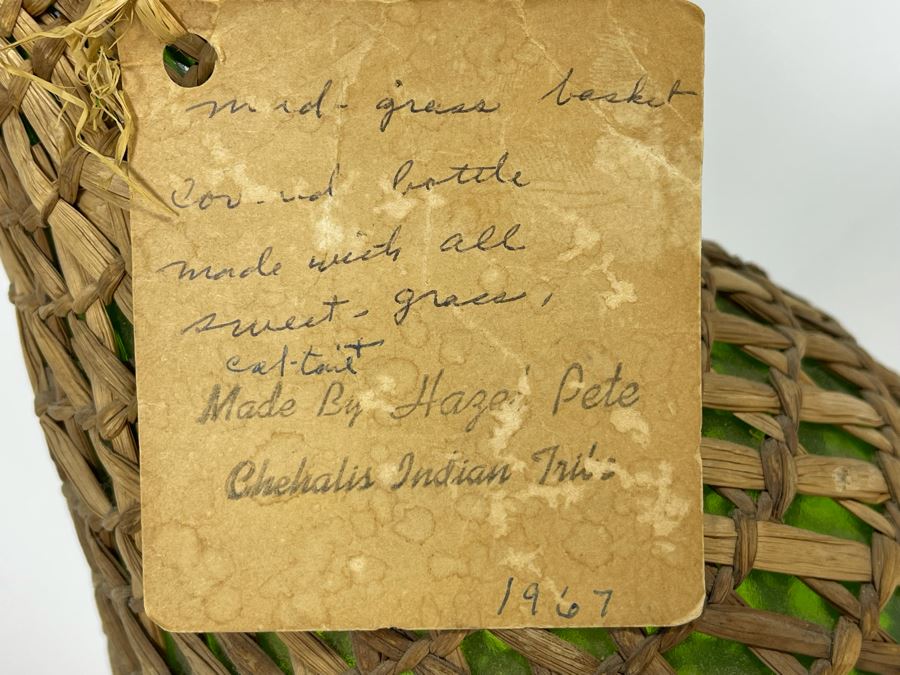 grass basket
bottle
made with all
sweet-grass,
cat-tail
Made By Hazel Pete
Chehalis Indian Tribe
1967